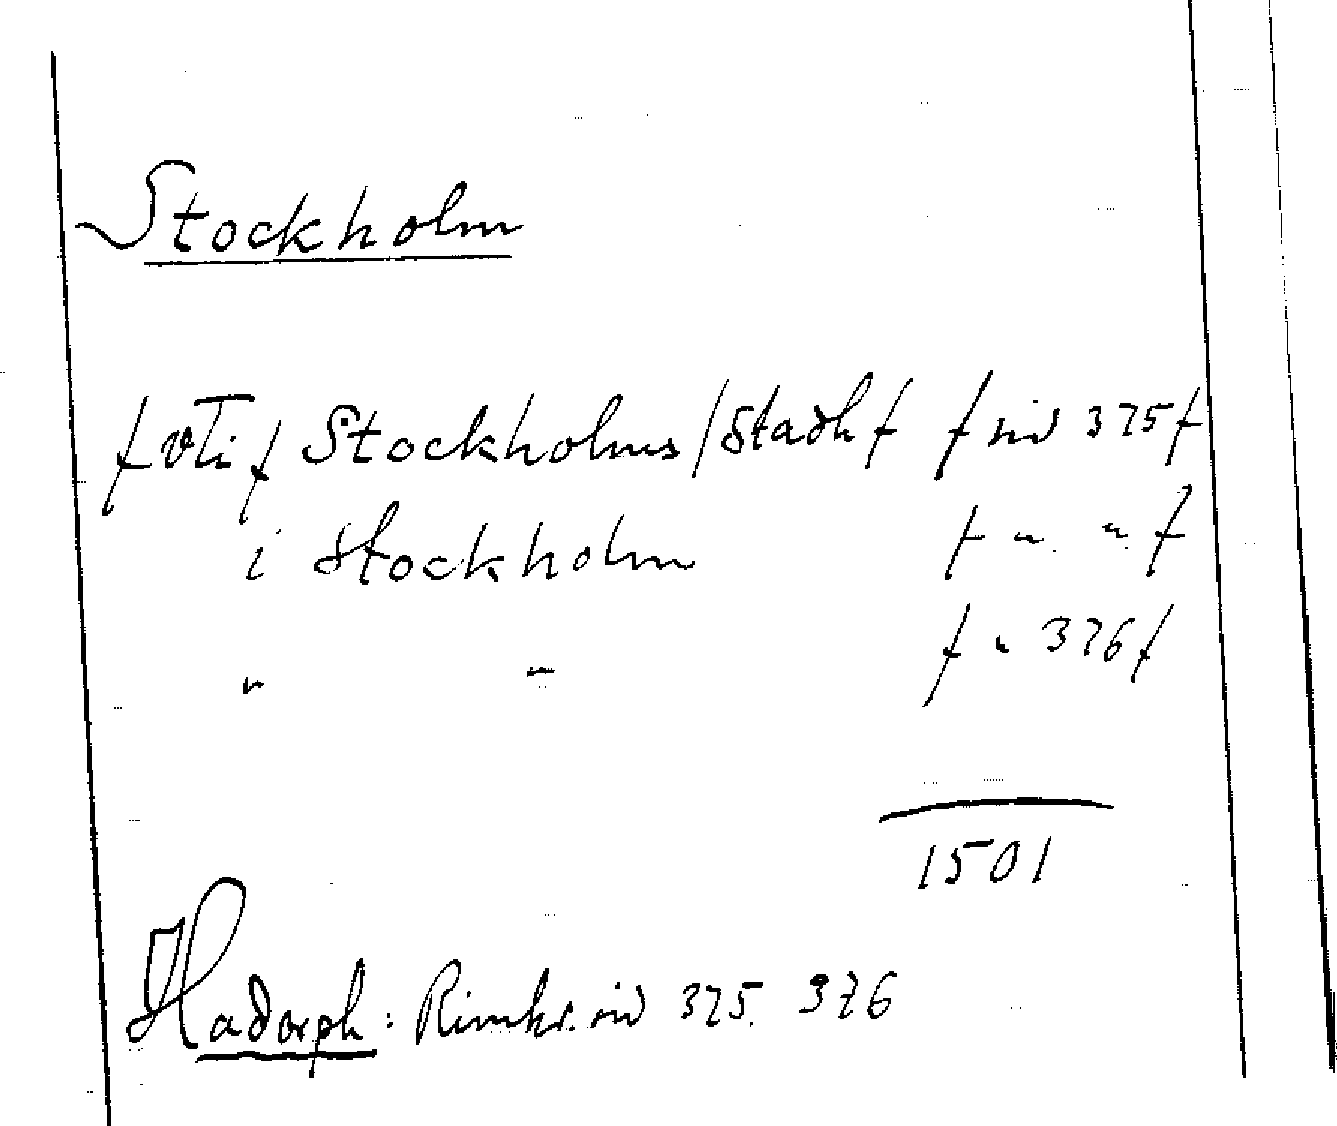 Stockholm
f vti f Stockholms / Stadh f f sid 375 f
i Stockholm f " " f
" " f " 376 f
1501
Hadorph: Rimkr. sid 375. 376